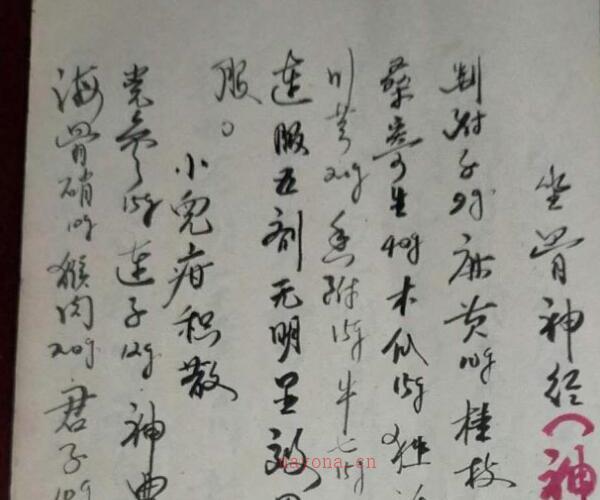 坐骨神经(神
制附子9g麻黄10g桂枝
桑寄生40g木瓜15g独活
川芎20g香附15g牛七15g
连服五剂无明显效果
服。
小儿疳积散
党参15g连子12g神曲
海骨硝10g猴肉20g君子10g
nayona.cn